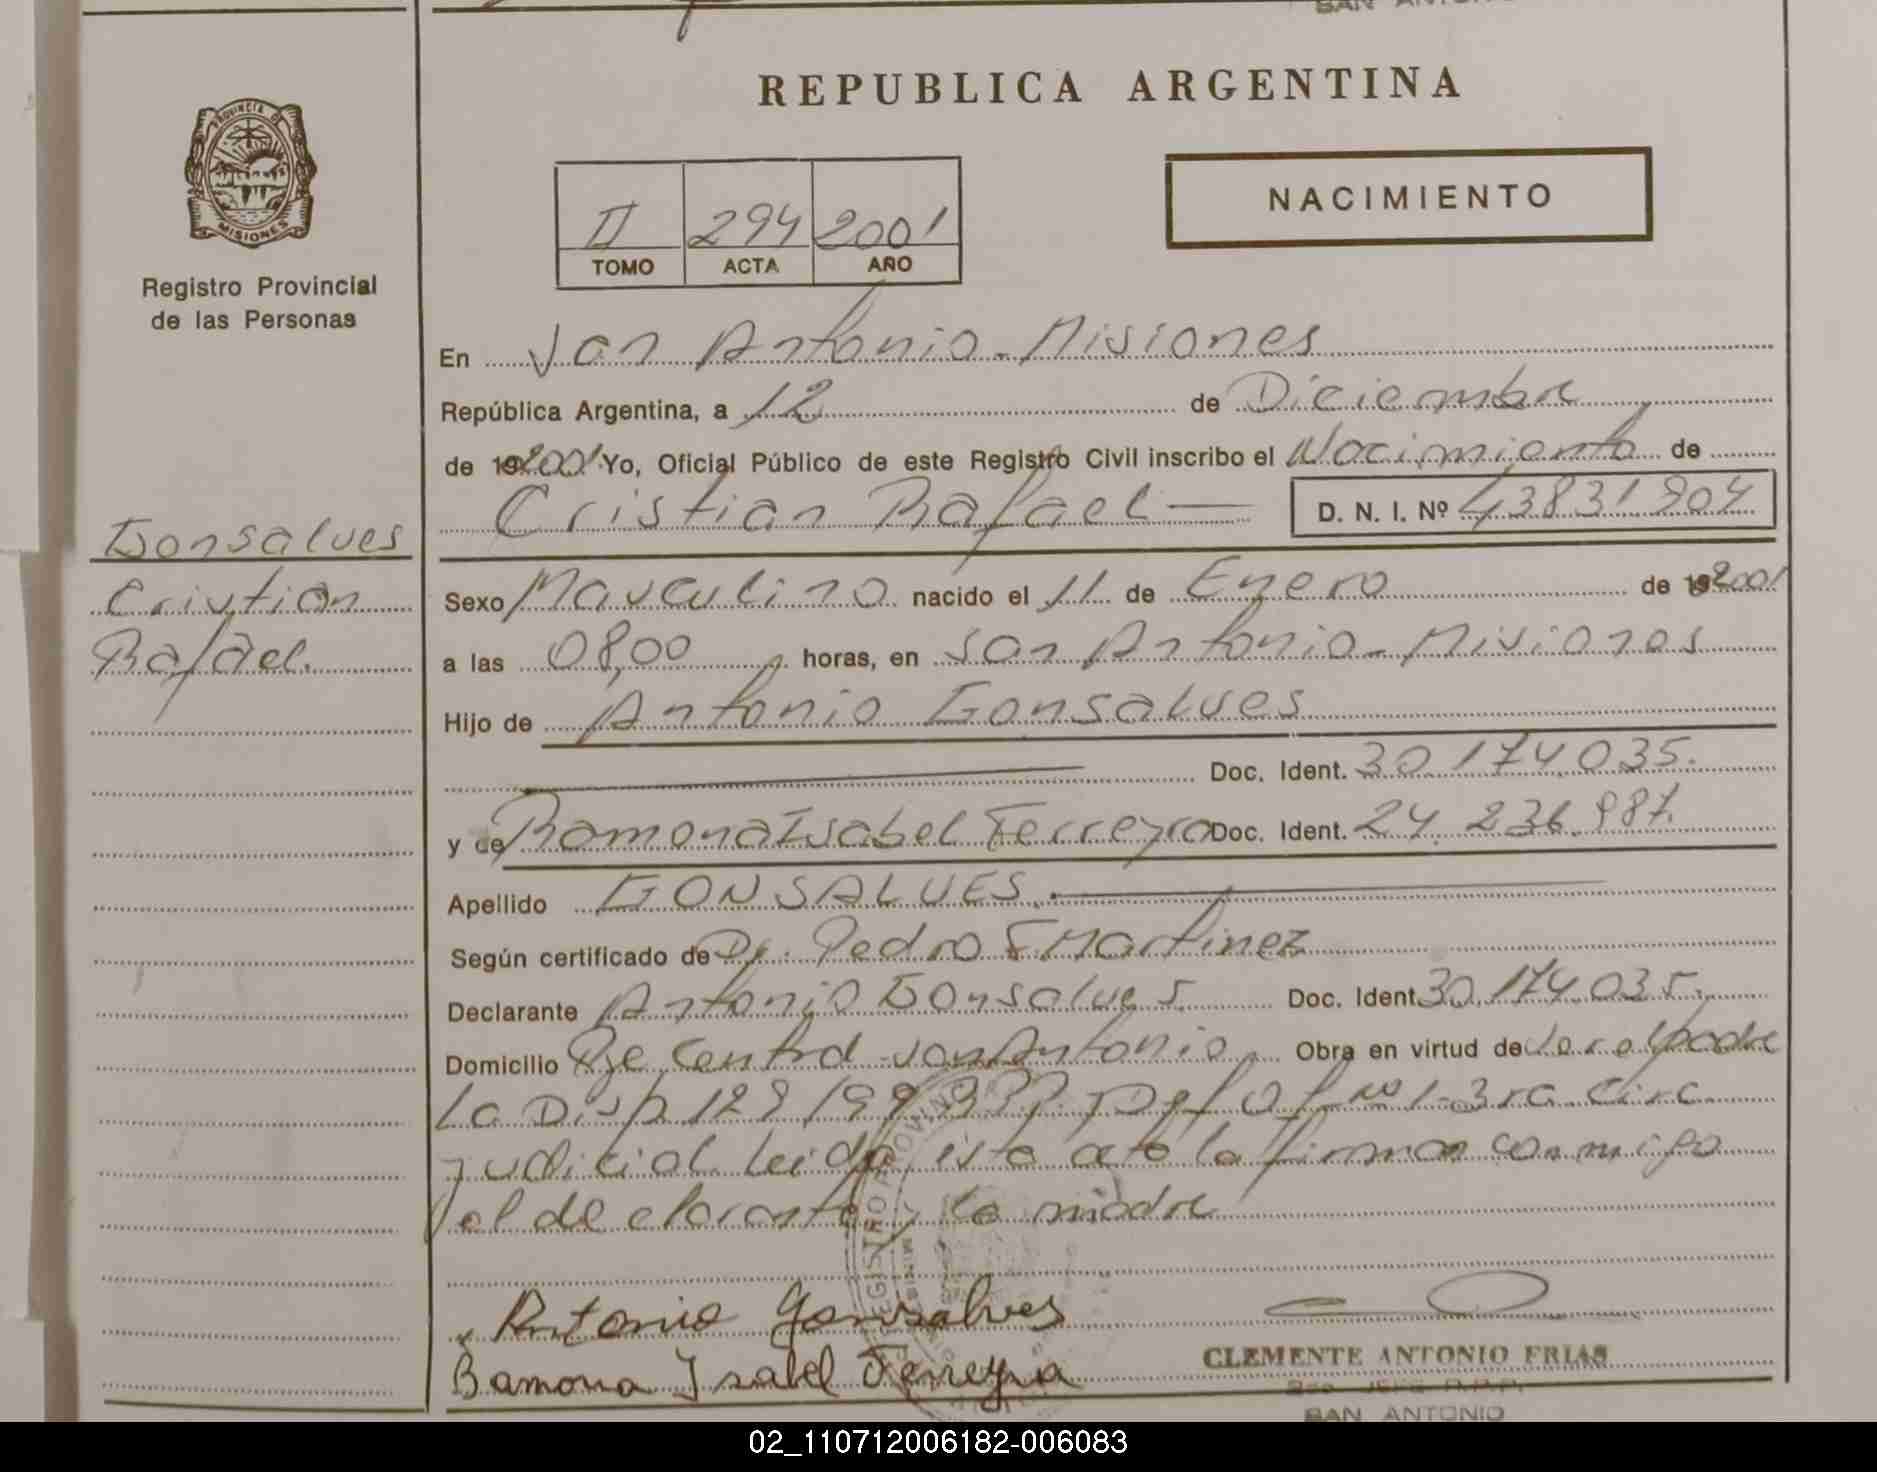 SAN ANTONIO
REPUBLICA ARGENTINA
PROVINCIA D
MISIONES
Registro Provincial
de las Personas
II 294 2001
TOMO ACTA AÑO
NACIMIENTO
En San Antonio - Misiones
República Argentina, a 12 de Diciembre
de 2001 Yo, Oficial Público de este Registro Civil inscribo el Nacimiento de
Cristian Rafael D. N. I. Nº 43831904
Gonsalves
Cristian
Rafael.
Sexo Masculino nacido el 11 de Enero de 2001
a las 08,00 horas, en San Antonio - Misiones
Hijo de Antonio Gonsalves
Doc. Ident. 30.174.035.
y de Ramona Isabel Ferreyra Doc. Ident. 24.236.987.
Apellido GONSALVES.
Según certificado de Dr. Pedro F Martinez
Declarante Antonio Gonsalves Doc. Ident. 30.174.035.
Domicilio Pje Central - San Antonio. Obra en virtud de ser el Padre
La Disp. 129/99 Def Of Nº 1 - 3ra Circ
judicial Leida esta acta la firman conmigo
el declarante y la madre
Antonio Gonsalves
Ramona Isabel Ferreyra
CLEMENTE ANTONIO FRIAS
SAN ANTONIO
02_110712006182-006083